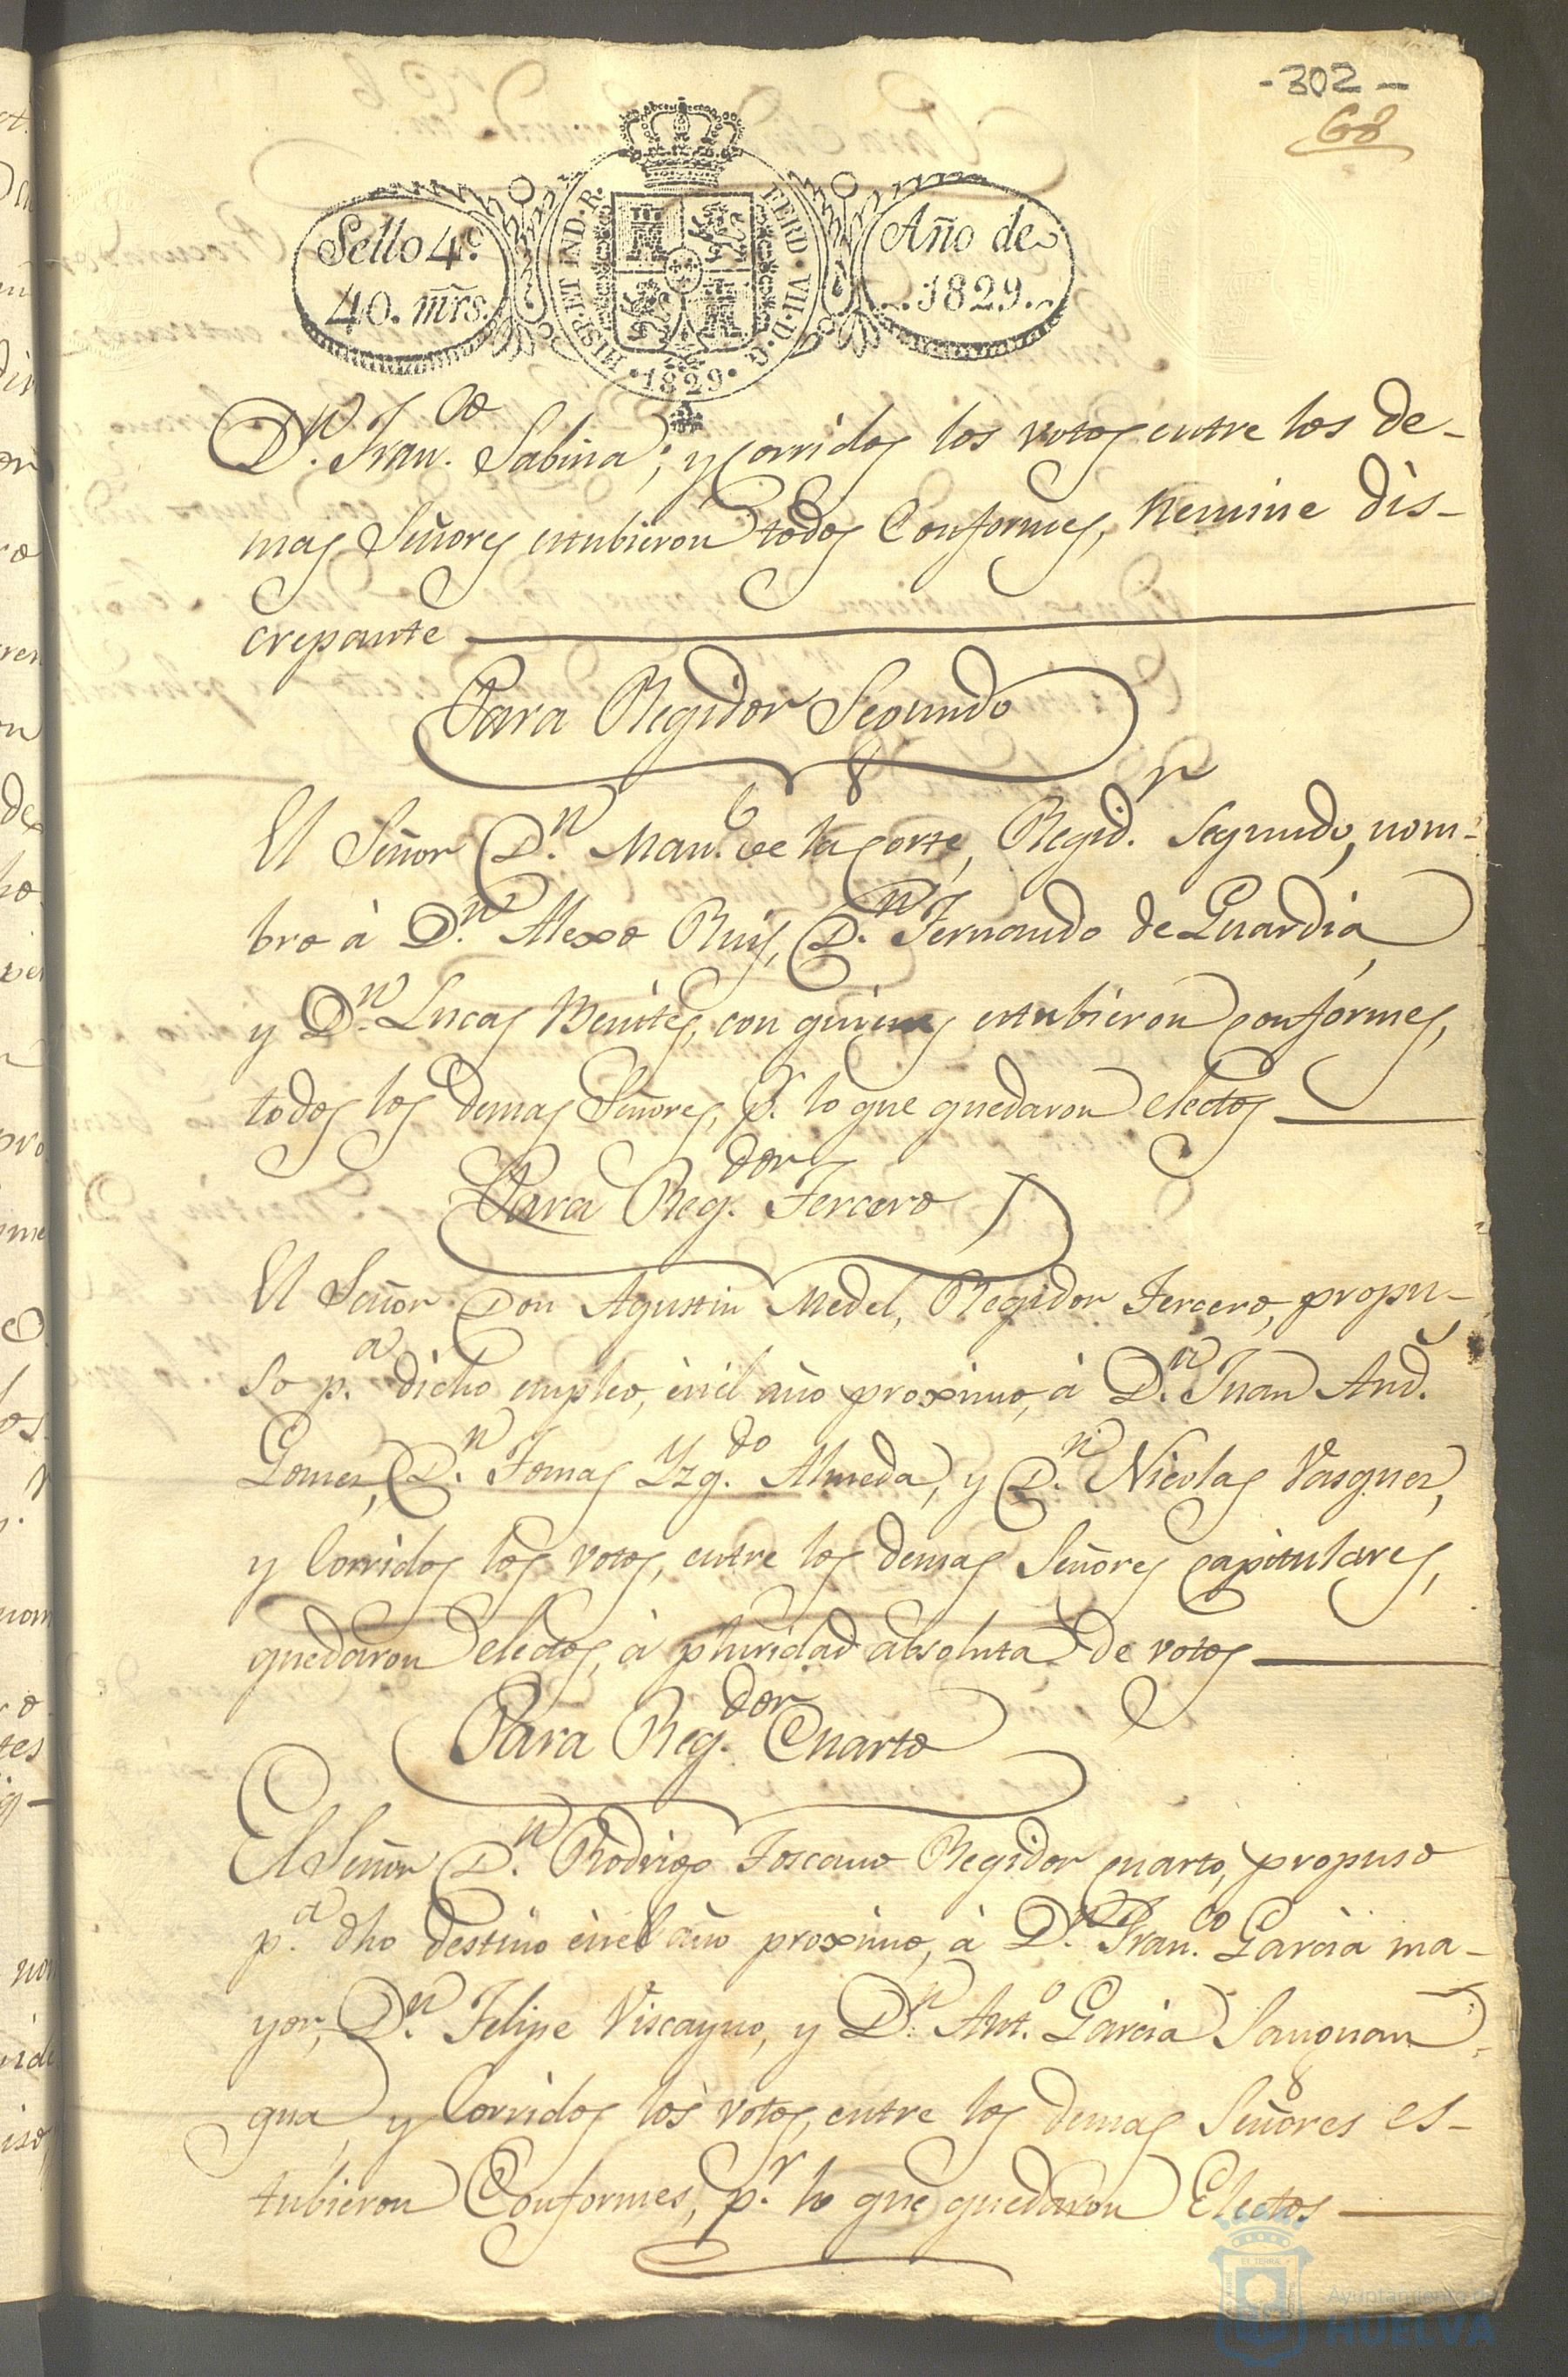 -302-
68
Sello 4º
40. mrs.
HISP. ET IND. R.
FERD. VII. D. G.
·1829·
Año de
1829.
D.ⁿ Fran.ᶜᵒ Sabina; y corridos los votos entre los de-
mas Señores estubieron todos Conformes, nemine dis-
crepante
Para Regidor Segundo
El Señor D.ⁿ Man.ˡ de la Corte, Regid.ʳ Segundo, nom-
bro à D.ⁿ Alexo Ruis, D.ⁿ Fernando de Guardia
y D.ⁿ Lucas Benites, con quienes estubieron conformes,
todos los demas Señores, p.ʳ lo que quedaron electos
Para Reg.ᵈᵒʳ Tercero
El Señor Don Agustin Medel, Regidor Tercero, propu-
so p.ᵃ dicho empleo, ènel año proximo, à D.ⁿ Juan And.ˢ
Gomez, D.ⁿ Tomas Yzq.ᵈᵒ Almeda, y D.ⁿ Nicolas Vasquez,
y Corridos los votos, entre los demas Señores capitulares,
quedaron electos, à pluridad absoluta de votos
Para Reg.ᵈᵒʳ Cuarto
El Señor D.ⁿ Rodrigo Toscano Regidor cuarto, propuso
p.ᵃ dho destino ènel año proximo, à D.ⁿ Fran.ᶜᵒ Garcia ma-
yor, D.ⁿ Felipe Viscayno, y D.ⁿ Ant.º Garcia
y Corridos los votos, entre los demas Señores es-
tubieron Conformes, p.ʳ lo que quedaron Electos
Ayuntamiento de
HUELVA